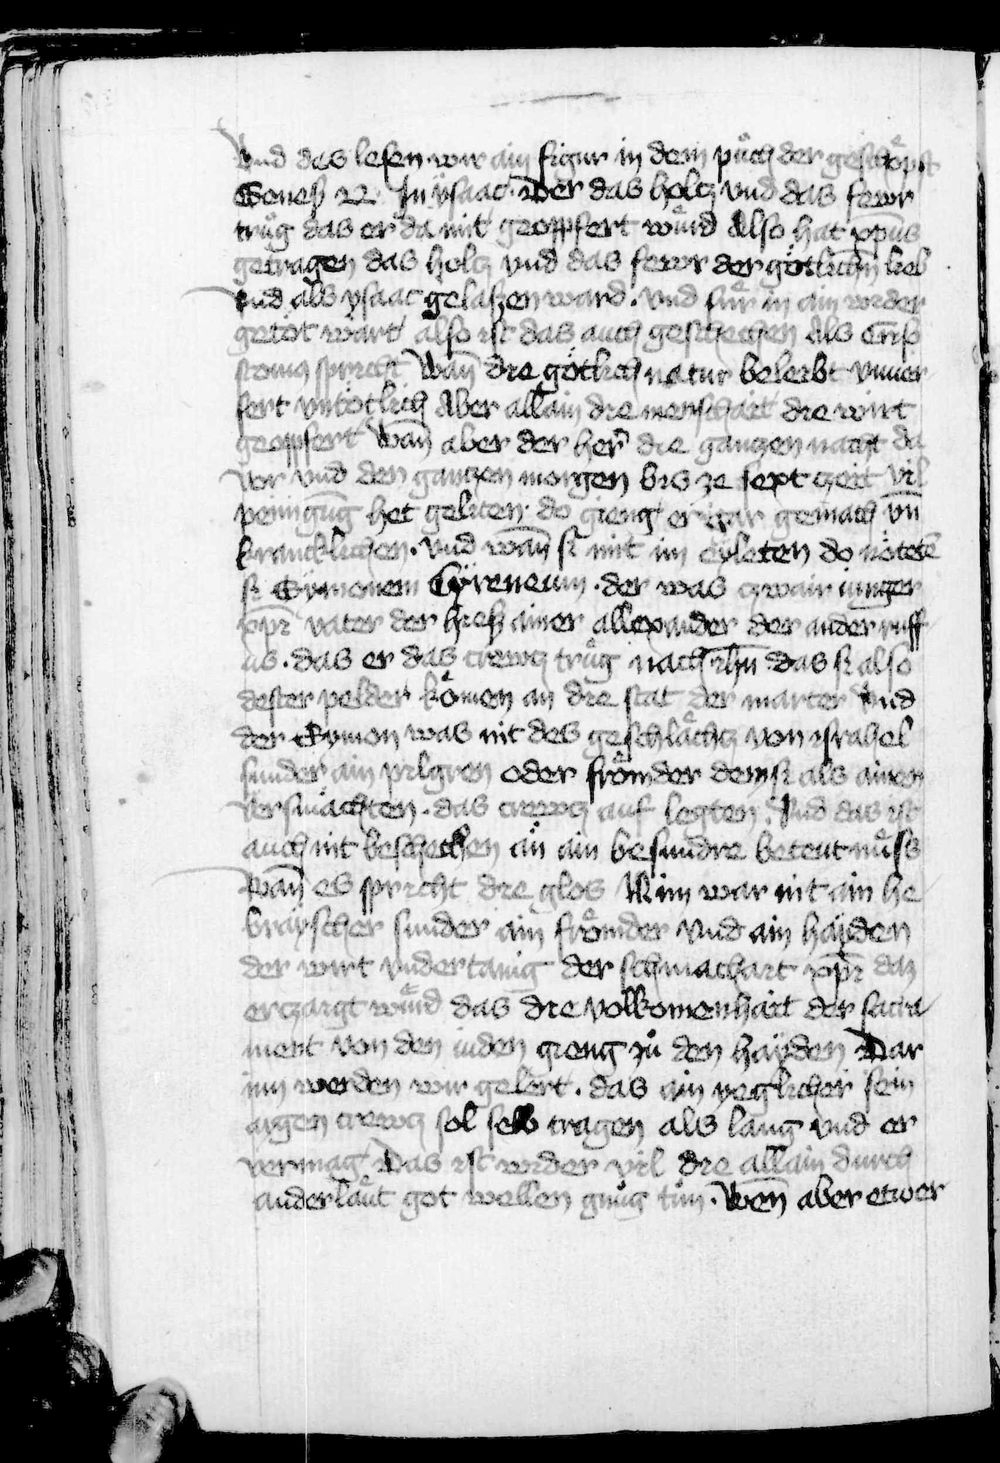 Vnd des lesen wir ain figur in dem půch der geschöpft
Genesis 22 In ysaac. Der das holcz vnd das fewr
trůg das er da mit geoppfert wurd Also hat xp̄us
getragen das holcz vnd das fewr der götlichn̄ lieb
Vnd als ysaac gelaszen ward. vnd für in ain wider
getöt wart also ist das auch geschechen Als Cris
stomus spricht Wan̄ die götlich natur beleibt vnuer
sert vntötlich Aber allain die menschait die wirt
geoppfert Wan̄ aber der her̄ die ganczen nacht da
vor vnd den ganczen morgen bis ze sext czeit vil
penigūg het geliten. do gieng er gar gemach vn̄
krancklichen. vnd wan̄ si mit im eyleten do nötetē
si Symonem Cyreneum. der was czwair iunger
xp̄i vater der hiesz ainer allexander der ander ruff
us. das er das crewcz trůg nach ihū das si also
dester pelder kömen an die stat der marter Vnd
der Symon was nit des geschlächcz von israhel
sunder ain pilgren oder frömder dem si als ainen
versmächten. das crewcz auf legten. Vnd das ist
auch nit beschechen an ain besundre beteutnüss
Wan̄ es spricht die glos Wim war nit ain he
brayscher sunder ain frömder vnd ain hayden
der wirt vndertanig der schmachait xp̄i daz
erczaigt wurd das die volkomenhait der sacra
ment von den iuden gieng zů den hayden Dar
inn werden wir gelert. das ain yeglicher sein
aigen crewcz sol selb tragen als lang vnd er
vermag Das ist wider vil die allain durch
ander läut got wellen gnůg tůn. Wen̄ aber etwer